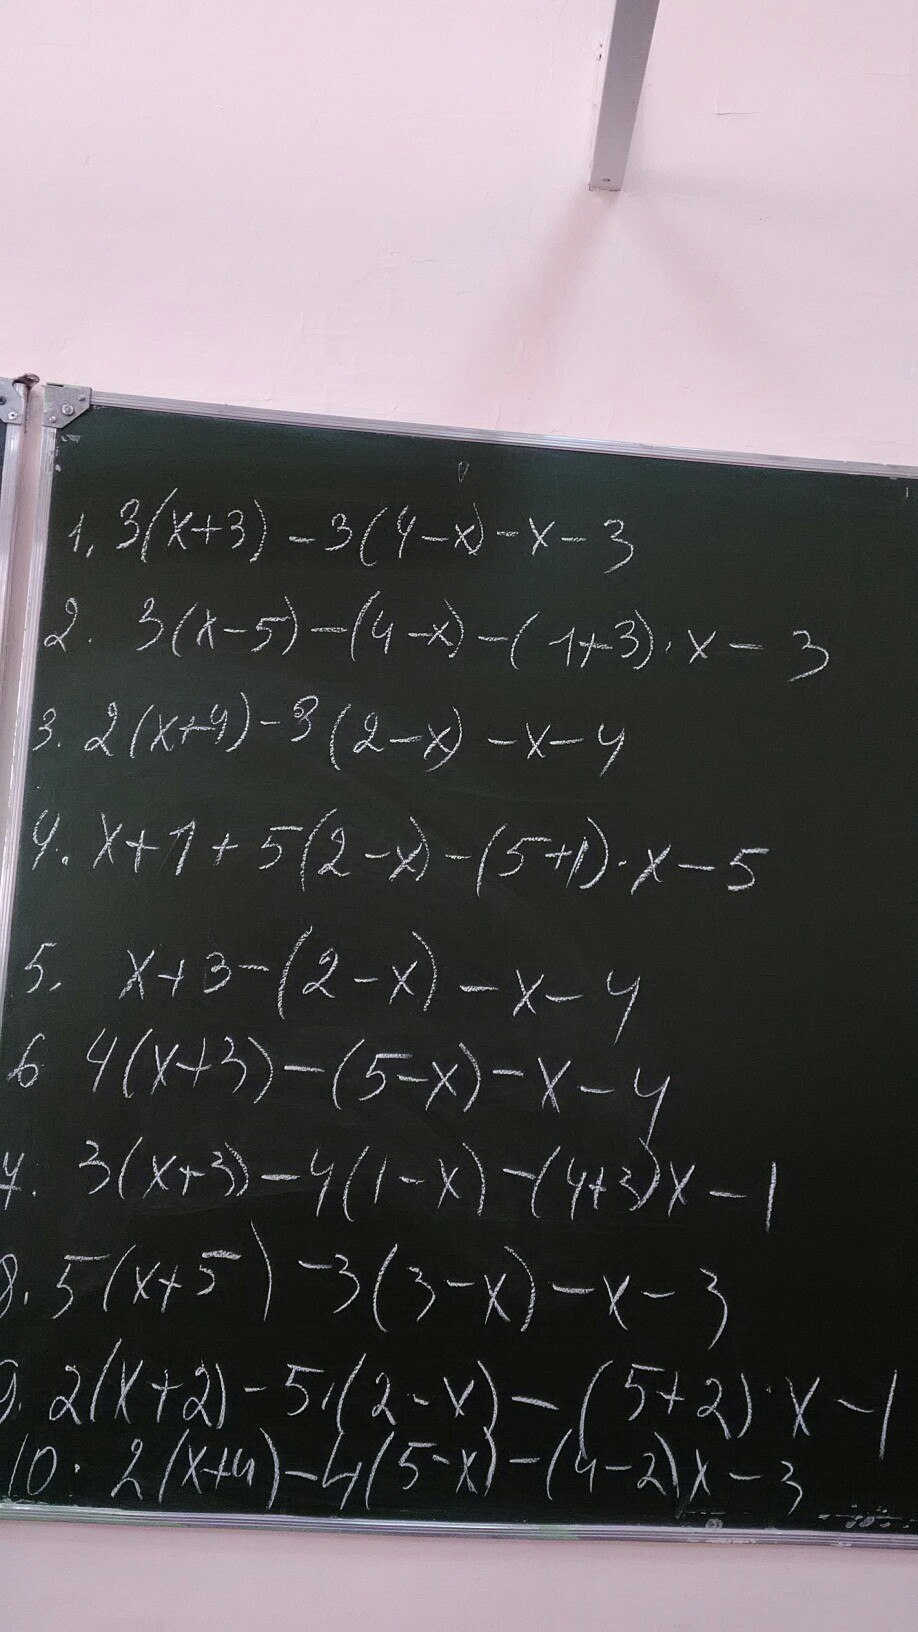 1. 3(x+3)-3(4-x)-x-3
2. 3(x-5)-(4-x)-(1+3)·x-3
3. 2(x+4)-3(2-x)-x-4
4. x+1+5(2-x)-(5+1)·x-5
5. x+3-(2-x)-x-4
6 4(x+3)-(5-x)-x-4
7. 3(x+3)-4(1-x)-(4+3)x-1
8. 5(x+5)-3(3-x)-x-3
9. 2(x+2)-5·(2-x)-(5+2)·x-1
10. 2(x+4)-4(5-x)-(4-2)x-3